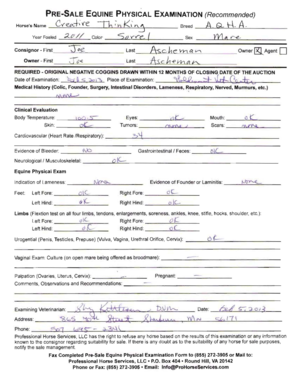 PRE-SALE EQUINE PHYSICAL EXAMINATION (Recommended)
Horse's Name Creative Thinking Breed A.Q.H.A.
Year Foaled 2011 Color Sorrel Sex Mare
Consignor - First Joe Last Ascheman Owner ☒ Agent ☐
Owner - First Joe Last Ascheman
REQUIRED - ORIGINAL NEGATIVE COGGINS DRAWN WITHIN 12 MONTHS OF CLOSING DATE OF THE AUCTION
Date of Examination: Place of Examination:
Medical History (Colic, Founder, Surgery, Intestinal Disorders, Lameness, Respiratory, Nerved, Murmurs, etc.)
Clinical Evaluation
Body Temperature: 100.5 Eyes: OK Mouth: OK
Skin: OK Tumors: none Scars: none
Cardiovascular (Heart Rate /Respiratory):
Evidence of Bleeder: NO Gastrointestinal / Faces: OK
Neurological / Musculoskeletal: OK
Equine Physical Exam
Indication of Lameness: None Evidence of Founder or Laminitis: None
Feet: Left Fore: OK Right Fore: OK
Left Hind: OK Right Hind: OK
Limbs (Flexion test on all four limbs, tendons, enlargements, soreness, ankles, knee, stifle, hocks, shoulder, etc.)
Left Fore: OK Right Fore: OK
Left Hind: OK Right Hind: OK
Urogenital (Penis, Testicles, Prepuce) (Vulva, Vagina, Urethral Orifice, Cervix): OK
Vaginal Exam: Culture (on open mare being offered as broodmare):
Palpation (Ovaries, Uterus, Cervix) Pregnant:
Comments, Observations and Recommendations:
Examining Veterinarian: DVM Date: Feb 5, 2013
Address: 56171
Phone: 507
Professional Horse Services, LLC has the right to refuse any horse based on the results of this examination or any information
known to the consignor regarding suitability for sale. If there is any doubt as to the suitability of any horse for sale purposes,
notify the sale management.
Fax Completed Pre-Sale Equine Physical Examination Form to (855) 272-3905 or Mail to:
Professional Horse Services, LLC • P.O. Box 464 • Round Hill, VA 20142
Phone or Fax: (855) 272-3905 • Email: Info@ProHorseServices.com